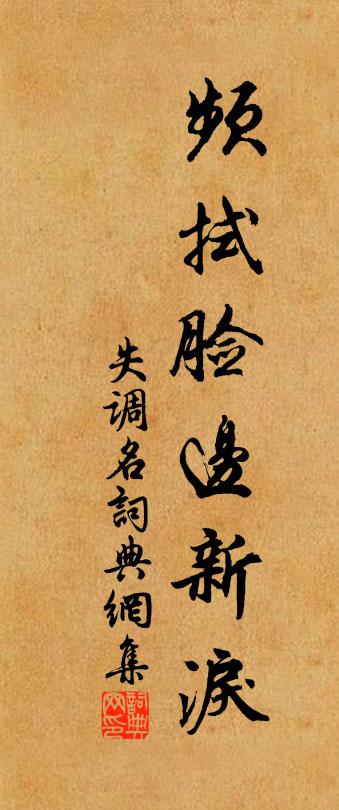 频拭脸邊新淚
失调名詞典網集
詞典網印